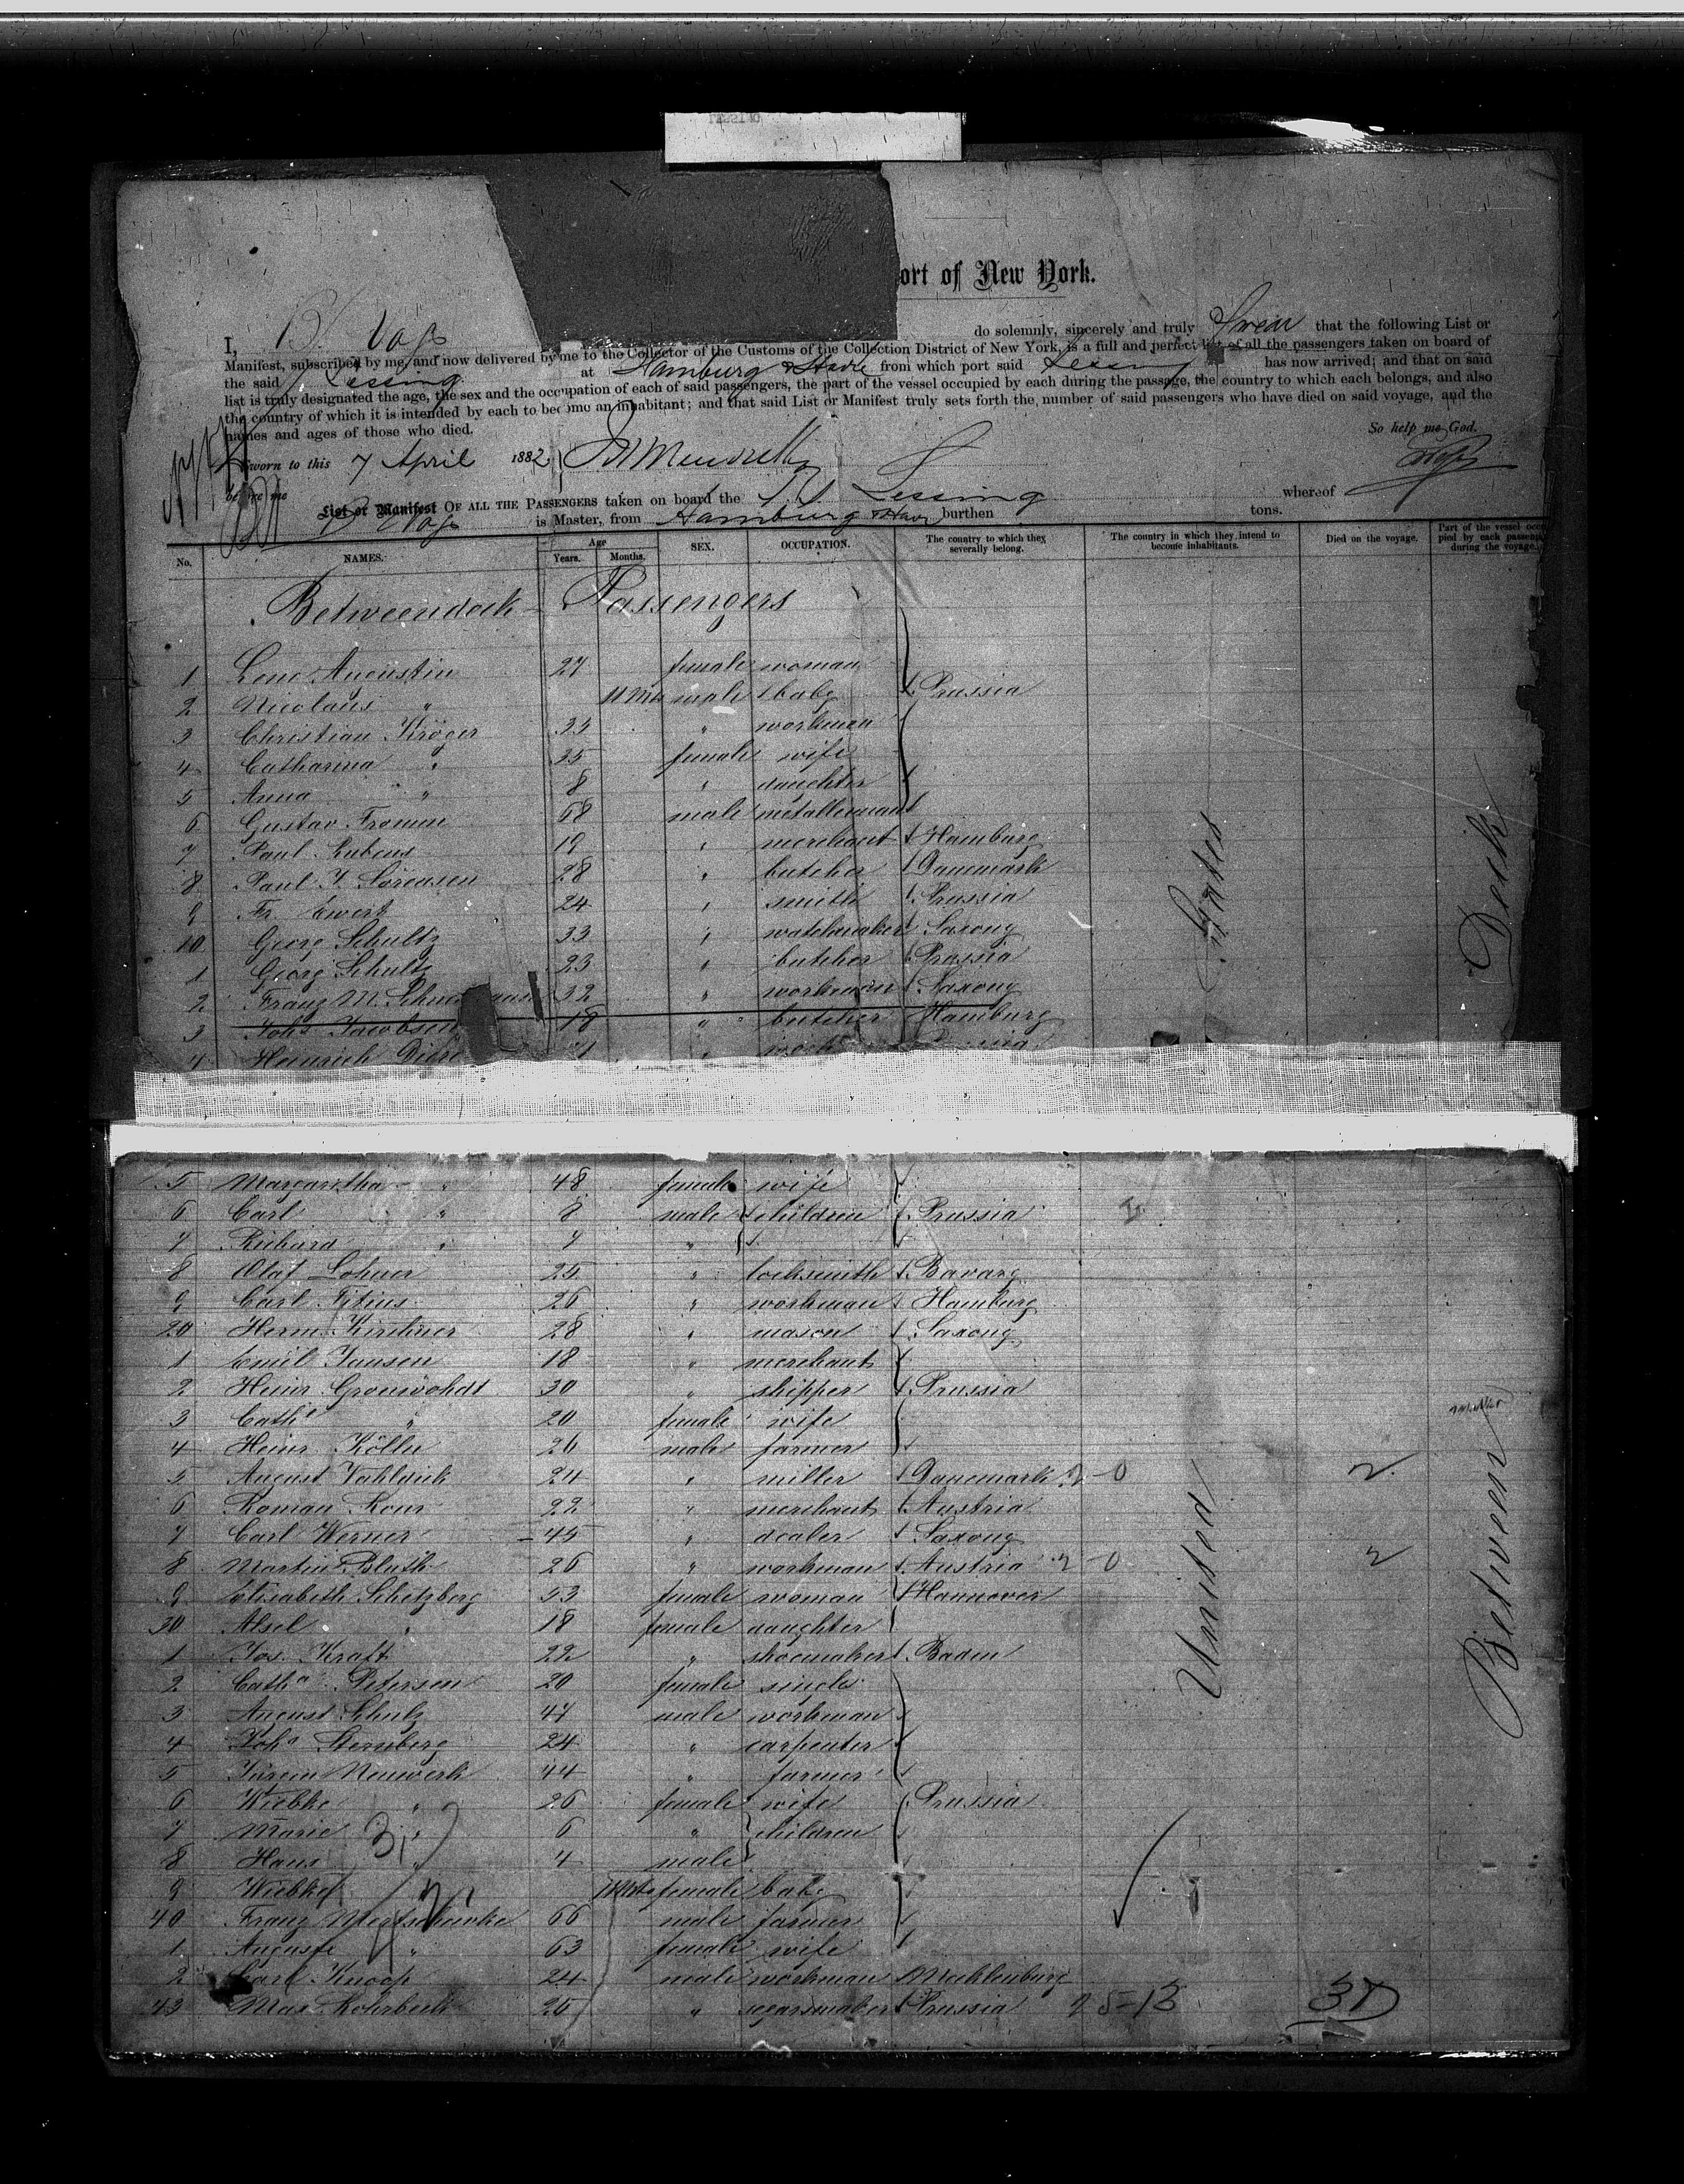 ort of New York.
I, B. Voss do solemnly, sincerely and truly Swear that the following List or
Manifest, subscribed by me, and now delivered by me to the Collector of the Customs of the Collection District of New York, is a full and perfect list of all the passengers taken on board of
the said Lessing at Hamburg & Havre from which port said Lessing has now arrived; and that on said
list is truly designated the age, the sex and the occupation of each of said passengers, the part of the vessel occupied by each during the passage, the country to which each belongs, and also
the country of which it is intended by each to become an inhabitant; and that said List or Manifest truly sets forth the number of said passengers who have died on said voyage, and the
names and ages of those who died. So help me God.
Sworn to this 7 April 1882
before me
List or Manifest OF ALL THE PASSENGERS taken on board the S.S. Lessing whereof
B. Voss is Master, from Hamburg & Havre burthen tons.
No. NAMES. Age Years. Months. SEX. OCCUPATION. The country to which they severally belong. The country in which they intend to become inhabitants. Died on the voyage. Part of the vessel occupied by each passenger during the voyage.
Betweendeck Passengers
1 Lene Augustin 27 female woman
2 Nicolaus " 11 Mts male baby Prussia
3 Christian Kröger 35 " workman
4 Catharina " 35 female wife
5 Anna " 8 " daughter
6 Gustav Fromm 58 male
7 Paul Rubens 19 " merchant Hamburg
8 Paul J. Sörensen 28 " butcher Danemark
9 Fr. Ewert 24 " smith Prussia
10 Georg Schultz 33 " watchmaker Saxony
1 Georg Schultz 23 " butcher Prussia
2 Franz M. 32 " workman Saxony
3 Joh. Jacobsen 18 " butcher Hamburg
4 Heinrich
5 Margaretha " 48 female wife
6 Carl " 8 male children Prussia
7 Richard " 7 "
8 Olaf Lohner 25 " locksmith Bavary
9 Carl Titius 26 " workman Hamburg
20 Herm. Kirchner 28 " mason Saxony
1 Emil Jansen 18 " merchant
2 Heinr. Gronwohdt 30 " shipper Prussia
3 Cath. " 20 female wife
4 Heinr. Kölln 26 male farmer
5 August 24 " miller Danemark 2-0 2
6 Roman 22 " merchant Austria
7 Carl Werner 45 " dealer Saxony
8 Martin Bluth 26 " workman Austria 2 0 2
9 Elisabeth Schetzberg 53 female woman Hannover
30 " 18 female daughter
1 Jos. Kraft 22 " shoemaker Baden
2 Catha Petersen 20 female single
3 August Schulz 47 male workman
4 Joh. Sternberg 24 " carpenter
5 Jürgen Neuwerk 44 " farmer
6 Wiebke " 26 female wife Prussia
7 Marie " 6 " children
8 Hans " 4 male
9 Wiebke female baby
40 Franz 66 male farmer
1 Auguste " 63 female wife
2 Carl Knoop 24 male workman Mecklenburg
43 Max Rohrbeck 25 " segarsmaker Prussia
United States
Between Deck